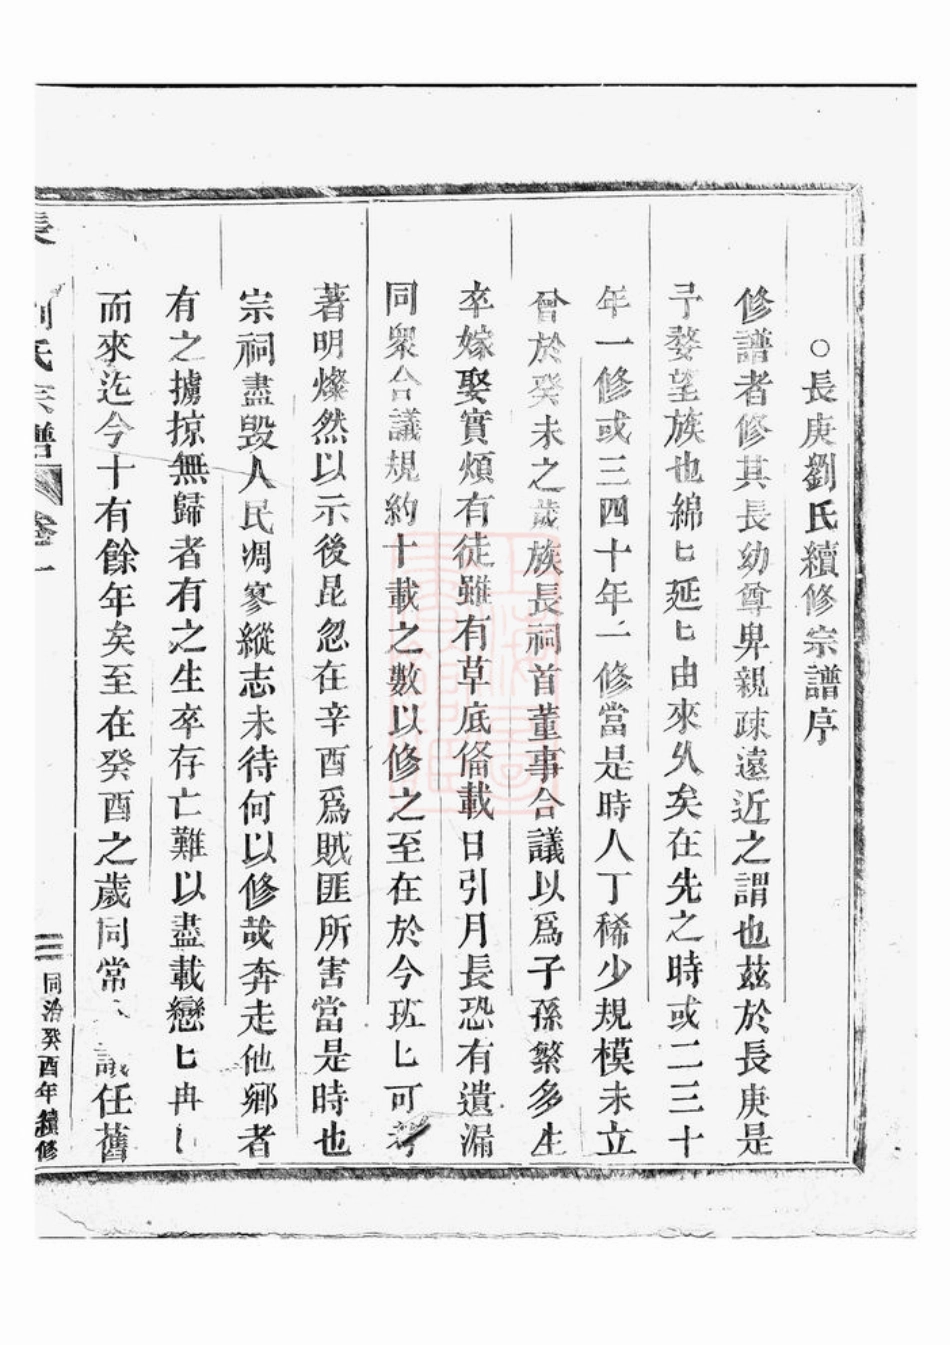 ○長庚劉氏續修宗譜序
修譜者修其長幼尊卑親疎遠近之謂也茲於長庚是
予婺望族也綿匕延匕由來久矣在先之時或二三十
年一修或三四十年一修當是時人丁稀少規模未立
曾於癸未之歲族長祠首董事合議以爲子孫繁多生
卒嫁娶實煩有徒雖有草底俻載日引月長恐有遺漏
同衆合議規約十載之數以修之至在於今班匕可考
著明燦然以示後昆忽在辛酉爲賊匪所害當是時也
宗祠盡毀人民凋寥縱志未待何以修哉奔走他鄉者
有之擄掠無歸者有之生卒存亡難以盡載戀匕冉匕
而來迄今十有餘年矣至在癸酉之歲同常議任舊
劉氏宗譜
卷一
二
同治癸酉年續修